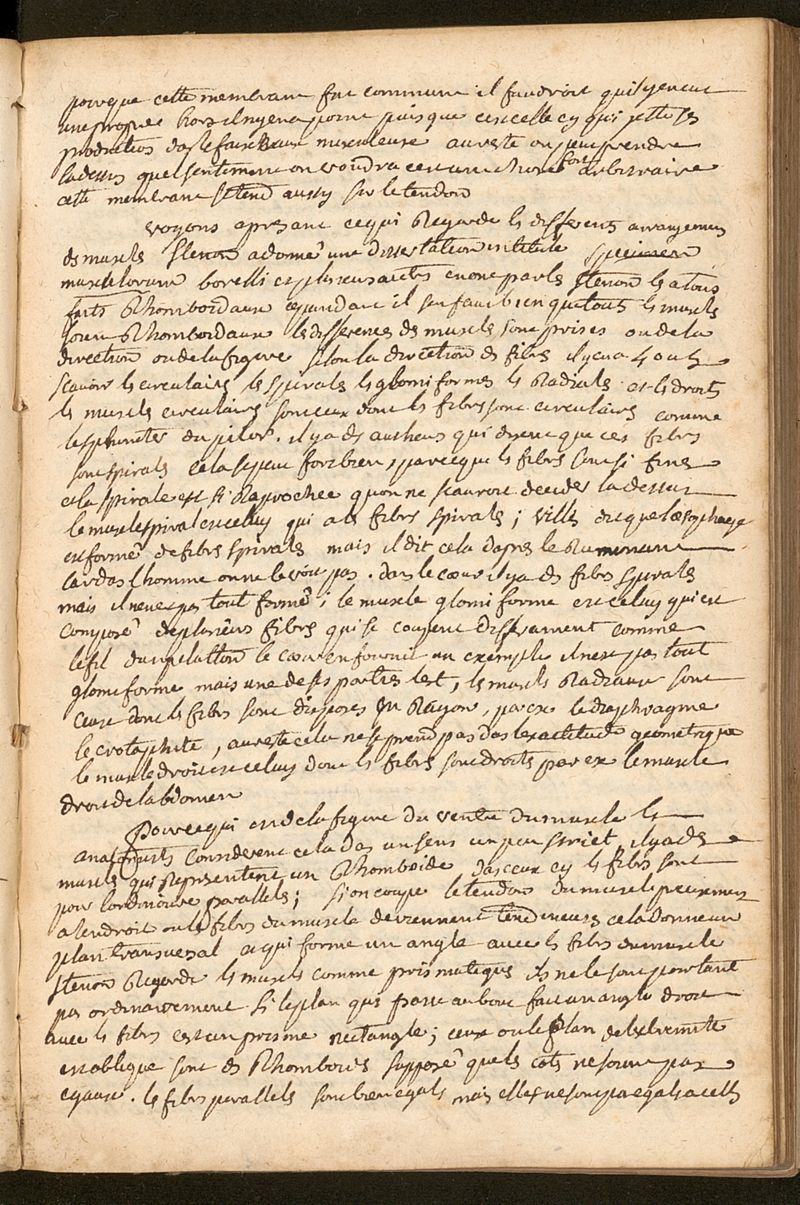 pour que cette membrane fut commune il faudroit quil y en eut
une propre hors il ny en a point puis que cest celle cy qui jette ses
productions dans le faisceaux musculeux au reste on peut prendre
la dessus quel sentiment on voudra cest une chose fort arbitraire
cette membrane setend aussy sur le tendon
voyons apresant ce qui Regarde les differents arrangemens
des muscles Stenon a donné une dissertation intitulé specimen
musculorum borelli et plusieurs autres en ont parlé Stenon les a tous
faits Rhomboidaux cependant il sen faut bien que tous les muscles
soient Rhomboidaux les differences des muscles sont prises ou de la
direction ou de la figure selon la direction des fibres il y en a 4 ou 5
scavoir les circulaires les spirals les glomiformes les Radials et les droits
les muscles circulaires sont ceux dont les fibres sont circulaires comme
le sphincter du pilor. il y a des autheurs qui disent que ces fibres
sont spirals cela se peut fort bien, parceque les fibres sont si fines
et la spirale est si Raprochée quon ne scauroit decider la dessus
le muscle spiral est celuy qui a les fibres spirals; Villis dit que lœsophage
est formé de fibres spirals mais il dit cela dapres le Ruminant
car dans lhomme on ne le voit pas. dans le cœur il y a des fibres spirals
mais il nen est pas tout formé; le muscle glomiforme est celuy qui est
composé de plusieurs fibres qui se coupent differament comme
le fil dun peloton le cœur en fournit un exemple il nest pas tout
glomiforme mais une de ses parties lest, les muscles Radiaux sont
ceux dont les fibres sont disposés en Rayon, par ex le diaphragme
le crotaphite, au reste cela ne se prend pas dans lexactitude geometrique
le muscle droit est celuy dont les fibres sont droits par ex le muscle
droit de labdomen
Pour ce qui est de la figure du ventre du muscle les
anatomistes considerent cela dans un sens un peu strict il y a des
muscles qui Representent un Rhomboide dans ceux cy les fibres sont
pour lordinaire parallels; si on coupe le tendon du muscle
a lendroit ou les fibres du muscle deviennent tendineuses cela donne un
plan transversal ce qui forme un angle avec les fibres du muscle
Stenon Regarde les muscles comme prismatiques ils ne le sont pourtant
pas ordinairement si le plan qui passe au bout fait un angle droit
avec les fibres cest un prisme rectangle; ceux ou le plan de lextremité
est oblique sont des Rhomboides supposé que les cotés ne soient pas
egaux. les fibres parallels sont bien egals mais elles ne sont pas egals a celles